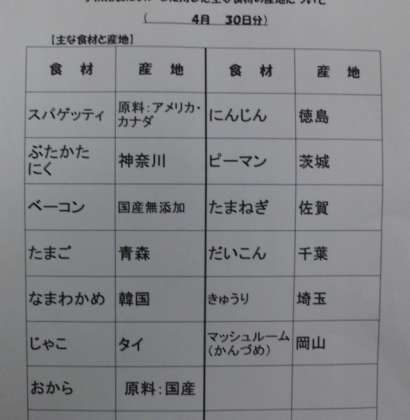 ( 4月 30日分)
【主な食材と産地】
食 材 産 地 食 材 産 地
スパゲッティ 原料:アメリカ・カナダ にんじん 徳島
ぶたかたにく 神奈川 ピーマン 茨城
ベーコン 国産無添加 たまねぎ 佐賀
たまご 青森 だいこん 千葉
なまわかめ 韓国 きゅうり 埼玉
じゃこ タイ マッシュルーム(かんづめ) 岡山
おから 原料:国産